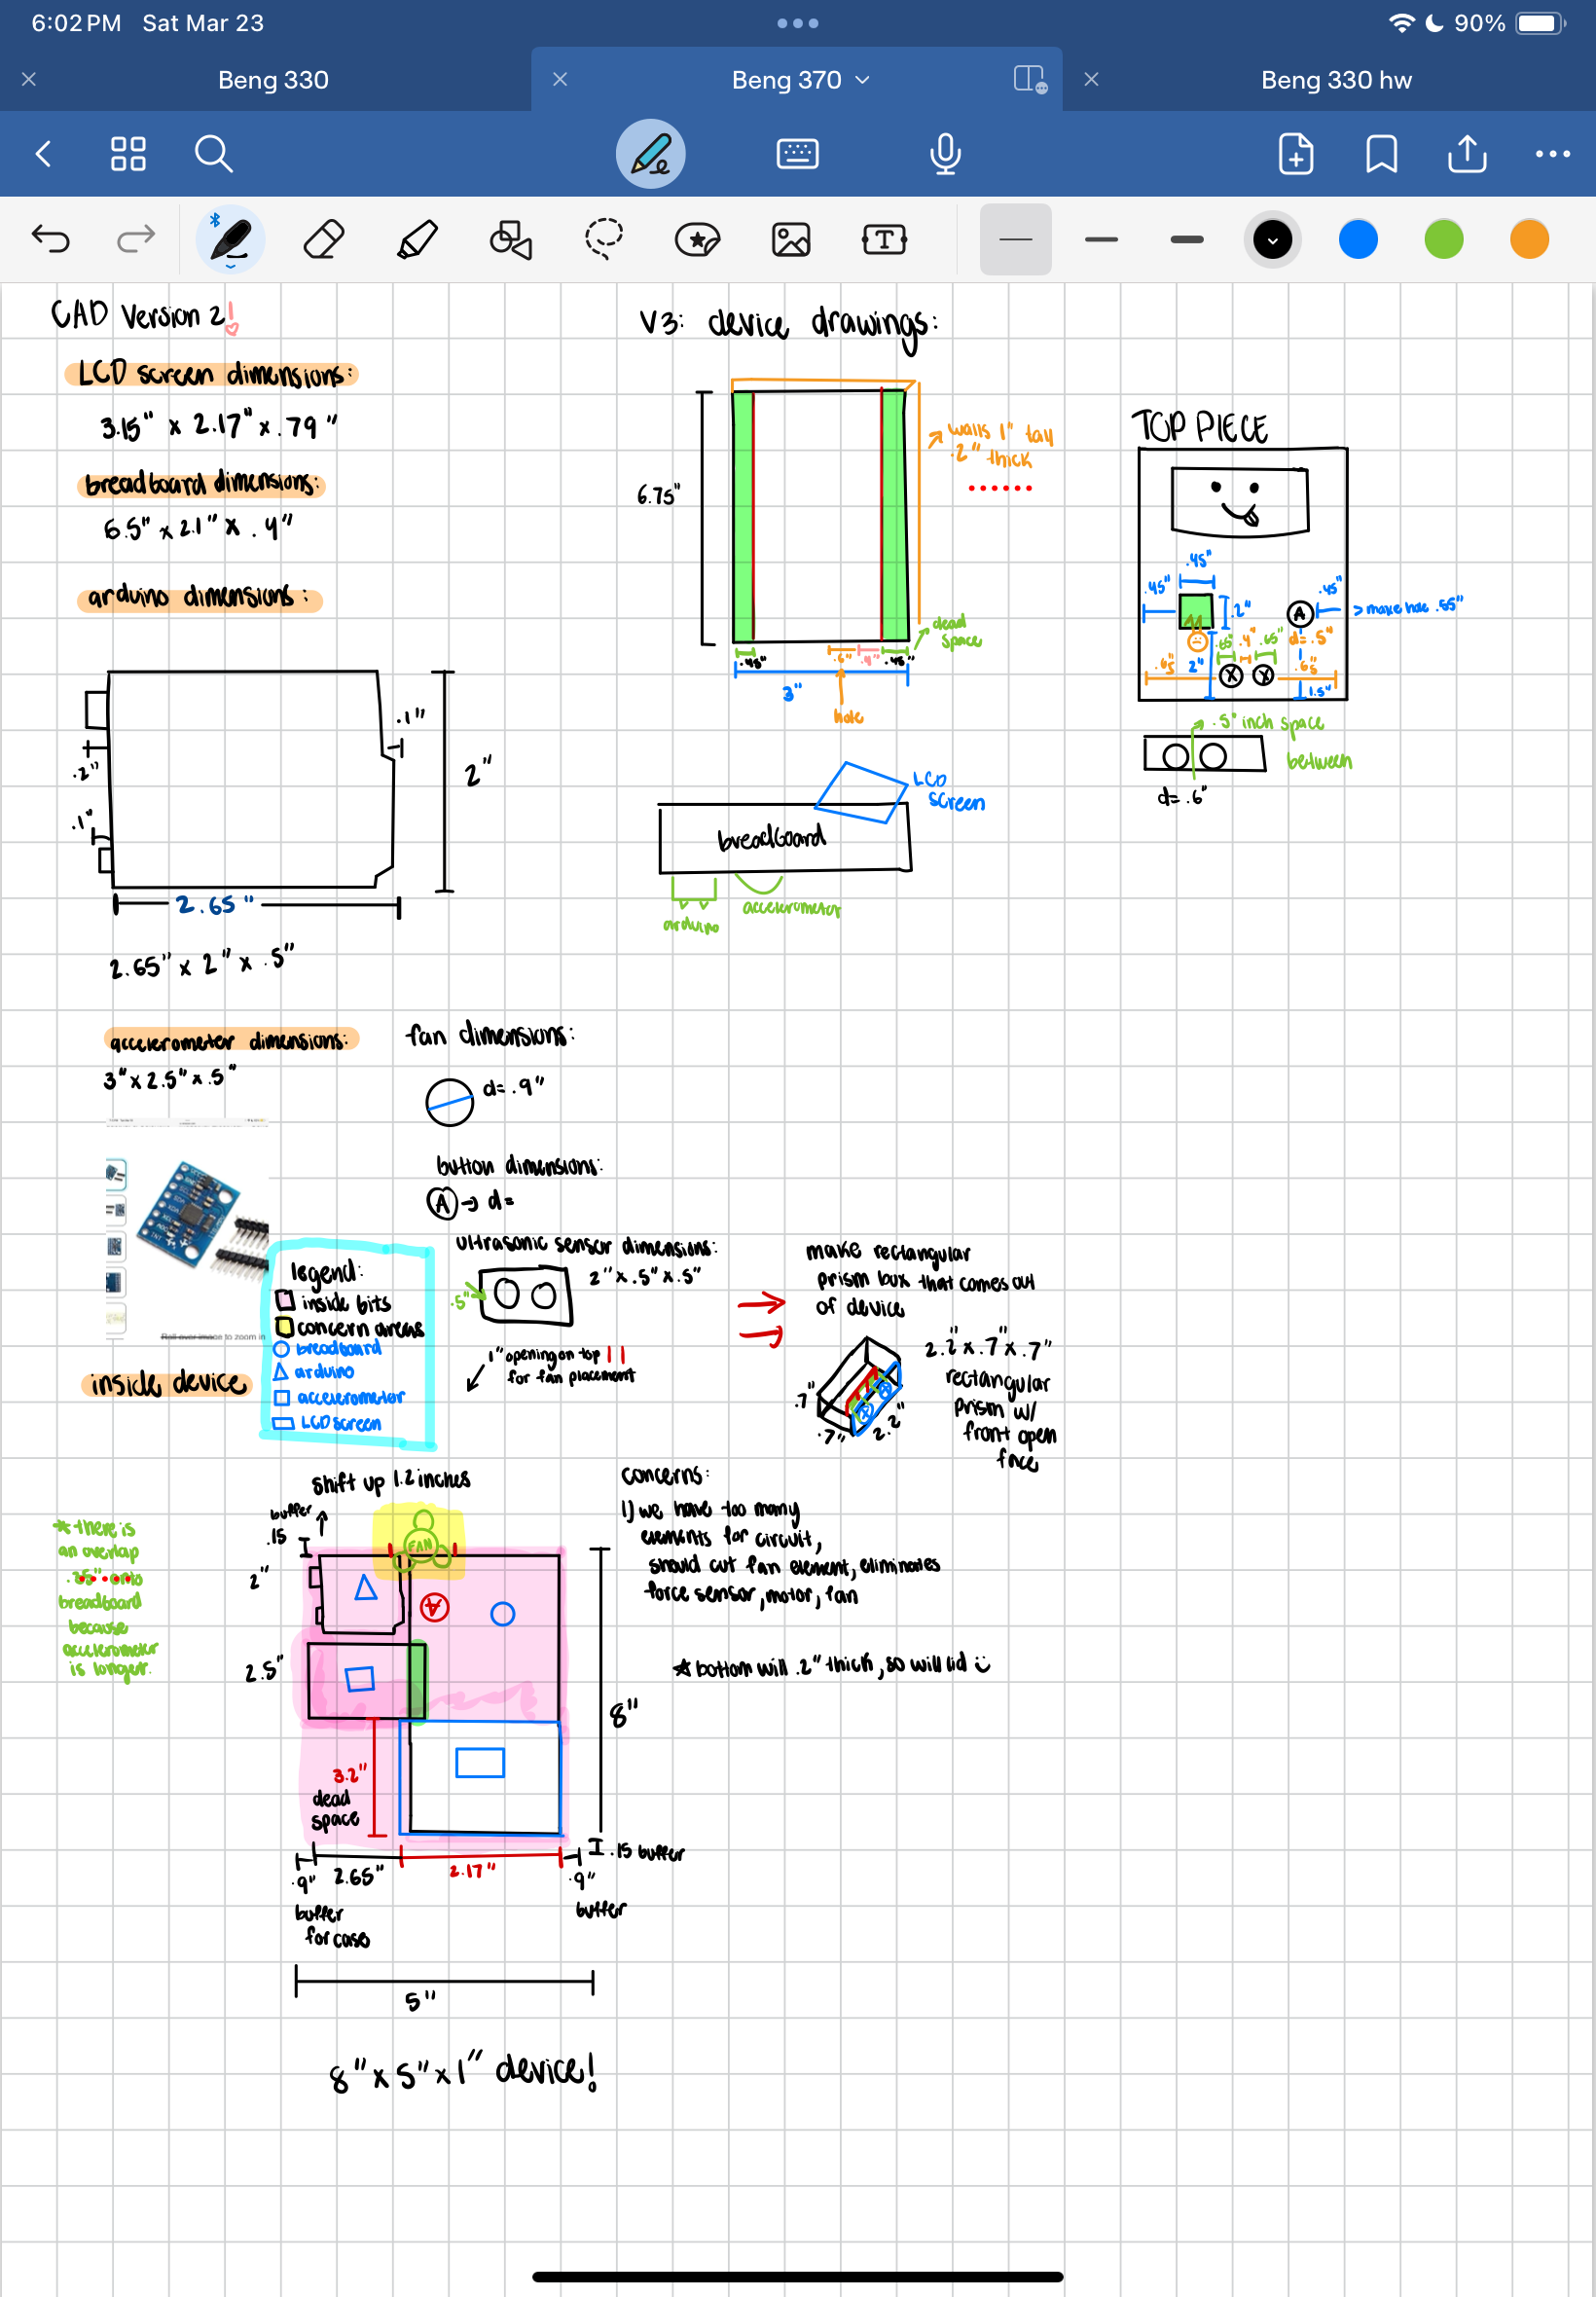 6:02 PM Sat Mar 23
90%
Beng 330
Beng 370
Beng 330 hw
CAD Version 2!
LCD screen dimensions:
3.15" x 2.17" x .79"
breadboard dimensions:
6.5" x 2.1" x .4"
arduino dimensions:
.2"
.1"
.1"
2"
2.65"
2.65" x 2" x .5"
accelerometer dimensions:
3" x 2.5" x .5"
Roll over image to zoom in
fan dimensions:
d= .9"
button dimensions:
A → d=
ultrasonic sensor dimensions:
2" x .5" x .5"
.5"
1" opening on top
for fan placement
legend:
inside bits
concern areas
breadboard
arduino
accelerometer
LCD screen
inside device
make rectangular
prism box that comes out
of device
2.2" x .7" x .7"
rectangular
prism w/
front open
face
.7"
.7"
2.2"
shift up 1.2 inches
buffer
.15
FAN
A
2"
2.5"
3.2"
dead
space
8"
.15 buffer
.9"
2.65"
2.17"
.9"
buffer
for case
buffer
5"
8" x 5" x 1" device!
* there is
an overlap
.35" onto
breadboard
because
accelerometer
is longer.
concerns:
1) we have too many
elements for circuit,
should cut fan element, eliminates
force sensor, motor, fan
* bottom will .2" thick, so will lid
V3: device drawings:
6.75"
walls 1" tall
.2" thick
dead
space
.45"
.6"
.4"
.45"
3"
hole
LCD
screen
breadboard
arduino
accelerometer
TOP PIECE
.45"
.45"
.2"
A
.45"
> make hole .55"
d= .5"
.65"
.4"
.65"
.65
2"
X
X
.65
1.5"
.5" inch space
between
d= .6"